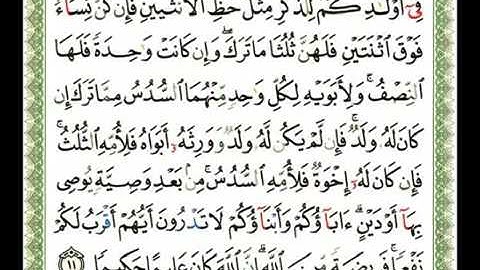 فِىٓ أَوْلَـٰدِكُمْ لِلذَّكَرِ مِثْلُ حَظِّ ٱلْأُنثَيَيْنِ فَإِن كُنَّ نِسَآءً
فَوْقَ ٱثْنَتَيْنِ فَلَهُنَّ ثُلُثَا مَا تَرَكَ ۖ وَإِن كَانَتْ وَٰحِدَةً فَلَهَا
ٱلنِّصْفُ ۚ وَلِأَبَوَيْهِ لِكُلِّ وَٰحِدٍ مِّنْهُمَا ٱلسُّدُسُ مِمَّا تَرَكَ إِن
كَانَ لَهُۥ وَلَدٌ ۚ فَإِن لَّمْ يَكُن لَّهُۥ وَلَدٌ وَوَرِثَهُۥٓ أَبَوَاهُ فَلِأُمِّهِ ٱلثُّلُثُ ۚ
فَإِن كَانَ لَهُۥٓ إِخْوَةٌ فَلِأُمِّهِ ٱلسُّدُسُ ۚ مِنۢ بَعْدِ وَصِيَّةٍ يُوصِى
بِهَآ أَوْ دَيْنٍ ۗ ءَابَآؤُكُمْ وَأَبْنَآؤُكُمْ لَا تَدْرُونَ أَيُّهُمْ أَقْرَبُ لَكُمْ
نَفْعًا ۚ فَرِيضَةً مِّنَ ٱللَّهِ ۗ إِنَّ ٱللَّهَ كَانَ عَلِيمًا حَكِيمًا ١١